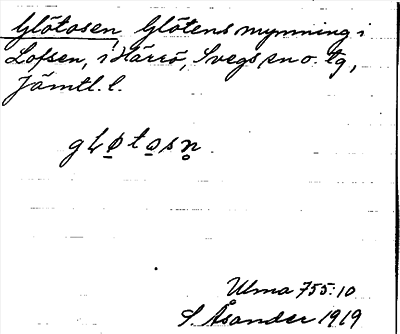 Glötosen, Glötens mynning i
Lofsen, i Härrö, Svegs sn o. tg,
Jämtl. l.
gLøtosn̥.
Ulma 755:10
S. Åsander 1919